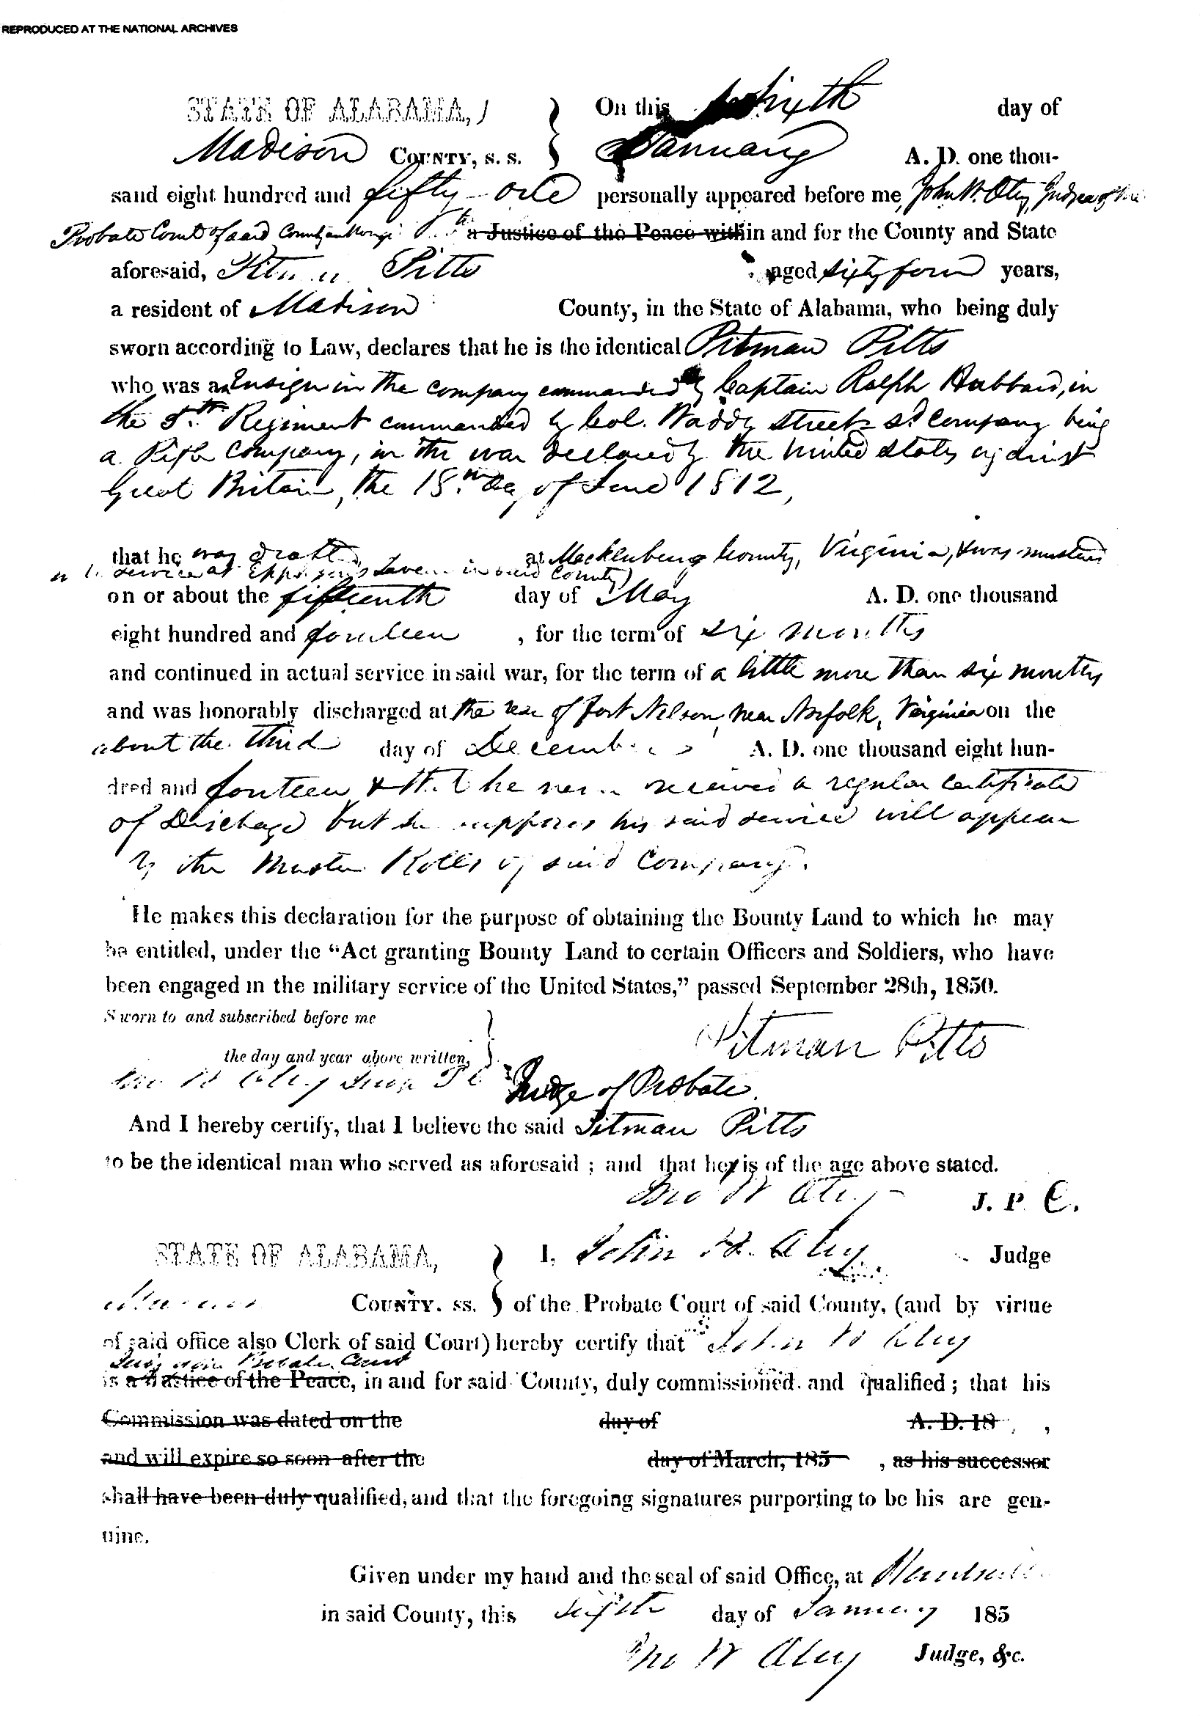 REPRODUCED AT THE NATIONAL ARCHIVES
STATE OF ALABAMA, On this Sixth day of
Madison COUNTY, s. s. January A. D. one thou-
sand eight hundred and fifty-one personally appeared before me, John W. Otey, Judge of the
Probate Court of said County a Justice of the Peace within and for the County and State
aforesaid, Pitman Pitts aged sixty four years,
a resident of Madison County, in the State of Alabama, who being duly
sworn according to Law, declares that he is the identical Pitman Pitts
who was an Ensign in the company commanded by Captain Ralph Hubbard, in
the 5th Regiment commanded by Col. Waddy Street sd company being
a Rifle Company, in the war declared by the United States against
Great Britain, the 18th day of June 1812,
that he was drafted at Mecklenburg County, Virginia, & was mustered
service at in said County
on or about the fifteenth day of May A. D. one thousand
eight hundred and fourteen , for the term of six months
and continued in actual service in said war, for the term of a little more than six months
and was honorably discharged at the rear of Fort Nelson, near Norfolk, Virginia on the
about the third day of December A. D. one thousand eight hun-
dred and fourteen & that he never received a regular certificate
of Discharge but he supposes his said service will appear
by the Muster Rolls of said Company.
He makes this declaration for the purpose of obtaining the Bounty Land to which he may
be entitled, under the "Act granting Bounty Land to certain Officers and Soldiers, who have
been engaged in the military service of the United States," passed September 28th, 1850.
Sworn to and subscribed before me
Pitman Pitts
the day and year above written,
Jno W Otey Judge of Probate.
And I hereby certify, that I believe the said Pitman Pitts
to be the identical man who served as aforesaid; and that he is of the age above stated.
Jno W Otey J. P C.
STATE OF ALABAMA, I, John W. Otey Judge
Madison COUNTY. ss. of the Probate Court of said County, (and by virtue
of said office also Clerk of said Court) hereby certify that John W Otey
Probate Court
is a Justice of the Peace, in and for said County, duly commissioned and qualified; that his
Commission was dated on the day of A. D. 18 ,
and will expire so soon after the day of March, 185 , as his successor
shall have been duly qualified, and that the foregoing signatures purporting to be his are gen-
uine.
Given under my hand and the seal of said Office, at Huntsville
in said County, this sixth day of January 185
Jno W Otey Judge, &c.